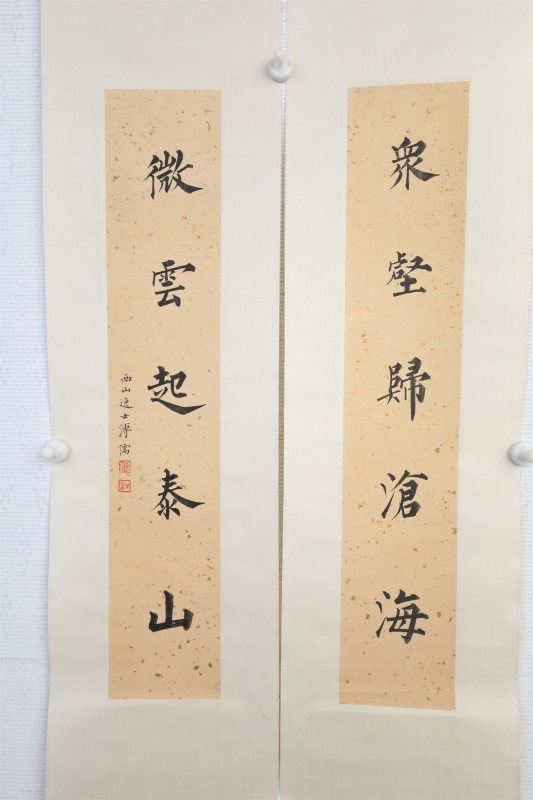 眾壑歸滄海
微雲起泰山
西山逸士溥儒